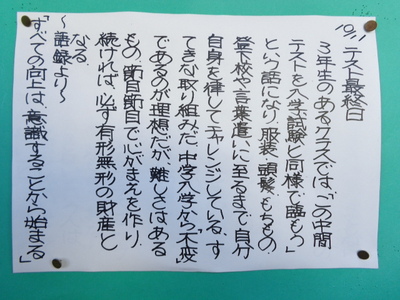 10/11
テスト最終日
3年生のあるクラスでは、「この中間
テストを入学試験と同様で臨もう」
という話になり、服装・頭髪・もちもの・
登下校や言葉遣いに至るまで自分
自身を律してチャレンジしている。す
てきな取り組みだ。中学入学から「不変」
であるのが理想だが、難しさはある
もの、節目節目で心がまえを作り、
続ければ、必ず有形無形の財産と
なる。
〜語録より〜
「すべての向上は、意識することから始まる」